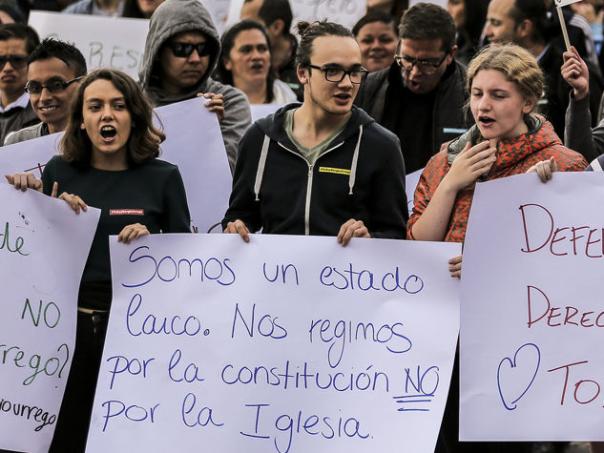 de
NO
rrego?
Somos un estado
laico. Nos regimos
por la constitución NO
por la Iglesia.
DEFE
DEREC
TO